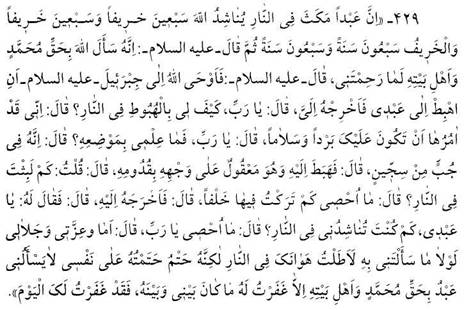 ۴۲۹ـ «اِنَّ عَبْداً مَکَثَ فِی النّٰارِ یُنٰاشِدُ اللّٰهَ سَبْعِینَ خَریفاً وَسَبْعِینَ خَرِیفاً
وَالْخَرِیفُ سَبْعُونَ سَنَةً وَسَبْعُونَ سَنَةً ثُمَّ قٰالَ-علیه السلام-:اِنَّهُ سَأَلَ اللّٰهَ بِحَقِّ مُحَمَّدٍ
وَاَهْلِ بَیْتِهِ لَمّٰا رَحِمْتَنی، قٰالَ-علیه السلام-:فَاَوْحَی اللّٰهُ اِلیٰ جَبْرَئیلَ-علیه السلام اَنِ
اهْبِطْ اِلیٰ عَبْدِی فَاَخْرِجْهُ اِلَیَّ، قٰالَ: یٰا رَبِّ، کَیْفَ لٖی بِالْهُبُوطِ فِی النّٰارِ؟ قٰالَ: اِنّی قَدْ
اٰمُرُهٰا اَنْ تَکُونَ عَلَیْکَ بَرْداً وَسَلٰاماً، قٰالَ: یٰا رَبِّ، فَمٰا عِلْمی بِمَوْضِعِهِ؟ قٰالَ: اِنَّهُ فِی
جُبٍّ مِنْ سِجّینٍ، قٰالَ:فَهَبَطَ اِلَیْهِ وَهُوَ مَعْقُولٌ عَلیٰ وَجْهِهِ بِقُدُومِهِ، قٰالَ: قُلْتُ: کَمْ لَبِثْتَ
فِی النّٰارِ؟ قٰالَ: مٰا اُحْصِی کَمْ تَرَکْتُ فیهٰا خَلْفاً، قٰالَ: فَاَخْرَجَهُ اِلَیْهِ، قٰالَ: فَقٰالَ لَهُ: یٰا
عَبْدِی، کَمْ کُنْتَ تُنٰاشِدُنِی فِی النّٰارِ؟ قٰالَ: مٰا اُحْصِی یٰا رَبِّ، قٰالَ: اَمٰا وعِزَّتِی وَجَلٰالِی
لَوْلٰا مٰا سَأَلْتَنِی بِهِ لَاَطَلْتُ هَوٰانَکَ فِی النّٰارِ لٰکِنَّهُ حَتْمٌ حَتَمْتُهُ عَلیٰ نَفْسِی لٰایَسْأَلُنِی
عَبْدٌ بِحَقِّ مُحَمَّدٍ وَاَهْلِ بَیْتِهِ اِلاّٰ غَفَرْتُ لَهُ مٰا کٰانَ بَیْنِی وَبَیْنَهُ، فَقَدْ غَفَرْتُ لَکَ الْیَوْمَ».